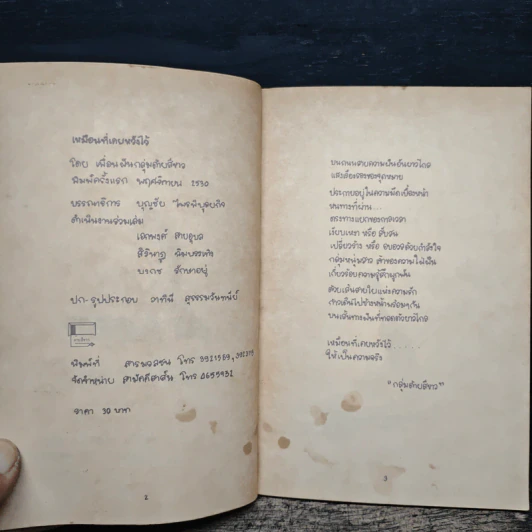 เหมือนที่เคยหวังไว้
โดย เพื่อนฝันกลุ่มด้ายสีขาว
พิมพ์ครั้งแรก พฤศจิกายน 2530
บรรณาธิการ บุญชัย
ดำเนินงานรวมเล่ม
เอกพงศ์ สายอุบล
ปก-รูปประกอบ วาทินี สุธรรมวันทนีย์
พิมพ์ที่ สารมวลชน โทร 3921569,
จัดจำหน่าย สามัคคีสาส์น โทร
ราคา 30 บาท
2
บนถนนสายความฝันอันยาวไกล
แสงเรืองรองของจุดหมาย
ประกายอยู่ในความมืดเบื้องหน้า
หนทางที่ผ่าน...
ตรงทางแยกของกาลเวลา
เงียบเหงา หรือ สับสน
เปลี่ยวร้าง หรือ อบอวลด้วยกำลังใจ
กลุ่มหนุ่มสาว เจ้าของความใฝ่ฝัน
เกี่ยวร้อยความรู้สึกผูกพัน
ด้วยเส้นสายใยแห่งความรัก
ก้าวเดินไปข้างหน้าพร้อมๆกัน
บนเส้นทางฝันที่ทอดตัวยาวไกล
เหมือนที่เคยหวังไว้......
ให้เป็นความจริง
"กลุ่มด้ายสีขาว"
3